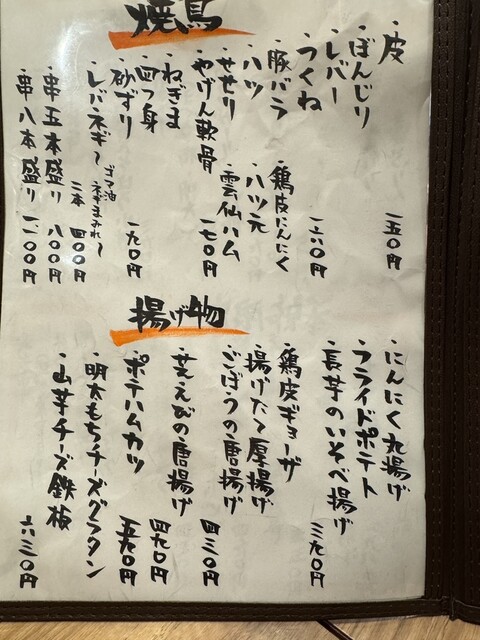 焼鳥
・皮
・ぼんじり
・レバー
・つくね
一五〇円
・豚バラ
・鶏皮にんにく
一六〇円
・ハツ
・ハツ元
・せせり
・雲仙ハム
・やげん軟骨
一七〇円
・ねぎま
・四つ身
・砂ずり
一九〇円
・レバネギ〜ゴマ油ネギまみれ〜
二本 四〇〇円
・串五本盛り 八〇〇円
・串八本盛り 一、一〇〇円
揚げ物
・にんにく丸揚げ
・フライドポテト
・長芋のいそべ揚げ
三九〇円
・鶏皮ギョーザ
・揚げたて厚揚げ
・ごぼうの唐揚げ
四三〇円
・芝えびの唐揚げ
四九〇円
・ポテハムカツ
五九〇円
・明太もちチーズグラタン
・山芋チーズ鉄板
六三〇円